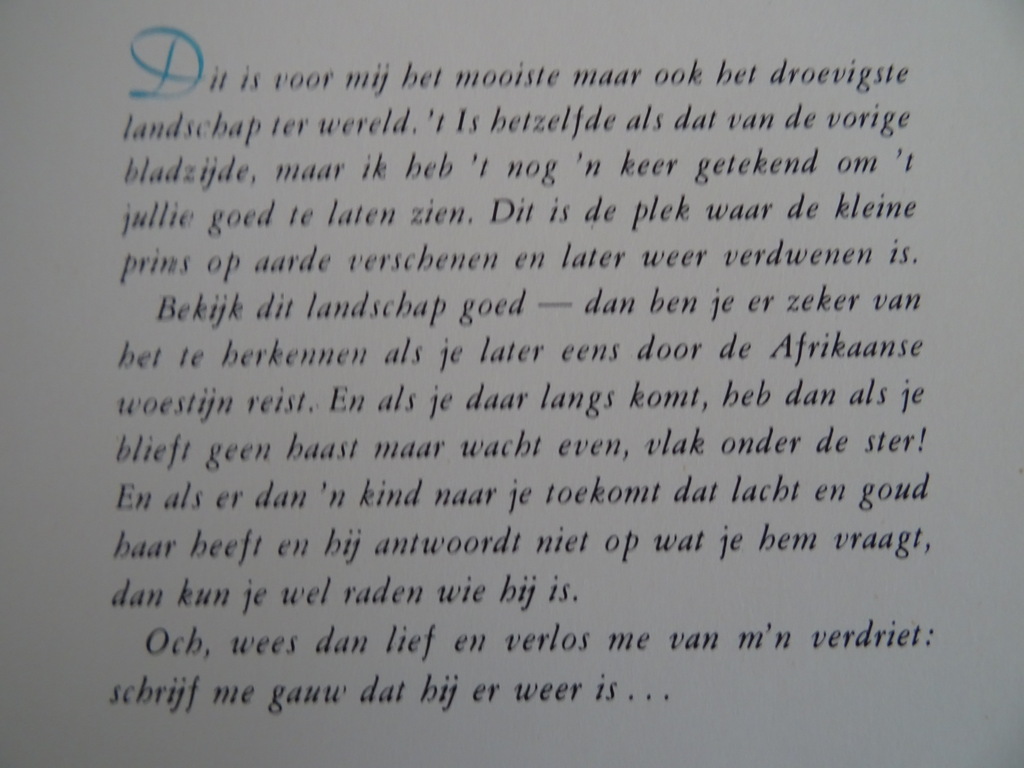 Dit is voor mij het mooiste maar ook het droevigste
landschap ter wereld. 't Is hetzelfde als dat van de vorige
bladzijde, maar ik heb 't nog 'n keer getekend om 't
jullie goed te laten zien. Dit is de plek waar de kleine
prins op aarde verschenen en later weer verdwenen is.
Bekijk dit landschap goed — dan ben je er zeker van
het te herkennen als je later eens door de Afrikaanse
woestijn reist. En als je daar langs komt, heb dan als je
blieft geen haast maar wacht even, vlak onder de ster!
En als er dan 'n kind naar je toekomt dat lacht en goud
haar heeft en hij antwoordt niet op wat je hem vraagt,
dan kun je wel raden wie hij is.
Och, wees dan lief en verlos me van m'n verdriet:
schrijf me gauw dat hij er weer is...